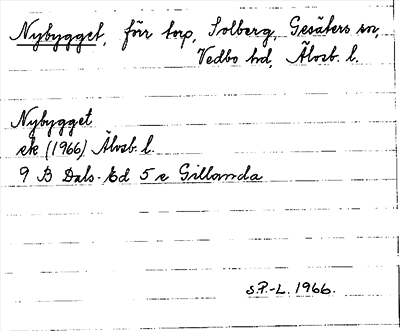 Nybygget, för torp, Solberg, Gesäters sn,
Vedbo hd, Älvsb. l.
Nybygget
ek (1966) Älvsb. l.
9 B Dals-Ed 5 e Gillanda
S.P.-L. 1966.